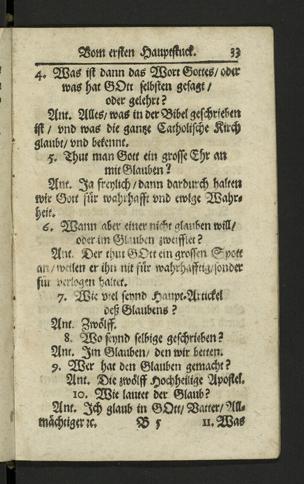 Vom ersten Hauptstuck. 33
4. Was ist dann das Wort Gottes/ oder
was hat GOtt selbsten gesagt/
oder gelehrt?
Ant. Alles/ was in der Bibel geschrieben
ist/ vnd was die gantze Catholische Kirch
glaubt/ vnd bekennt.
5. Thut man Gott ein grosse Ehr an
mit Glauben?
Ant. Ja freylich/ dann dardurch halten
wir Gott für wahrhafft vnd ewige Wahr-
heit.
6. Wann aber einer nicht glauben will/
oder im Glauben zweifflet?
Ant. Der thut GOtt ein grossen Spott
an/ weilen er ihn nit für wahrhafftig/ sonder
für verlogen haltet.
7. Wie viel seynd Haupt-Artickel
deß Glaubens?
Ant. Zwölff.
8. Wo seynd selbige geschrieben?
Ant. Im Glauben/ den wir betten.
9. Wer hat den Glauben gemacht?
Ant. Die zwölff Hochheilige Apostel.
10. Wie lautet der Glaub?
Ant. Ich glaub in GOtt/ Vatter/ All-
mächtiger ꝛc. B 5 11. Was